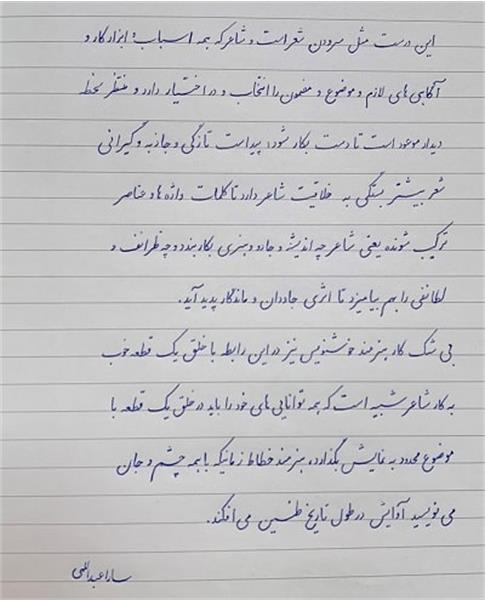 این درست مثل سرودن شعر است و شاعر که همه اسباب؛ ابزار کار و
آگاهی های لازم و موضوع و مضمون را انتخاب و در اختیار دارد و منتظر لحظه
دیدار موعود است تا دست بکار شود؛ پیداست تازگی و جاذبه و گیرائی
شعر بیشتر بستگی به خلاقیت شاعر دارد تا کلمات واژه ها و عناصر
ترکیب شونده یعنی شاعر چه اندیشه و جادو و هنری بکار بندد و چه ظرائف و
لطائفی را بهم بیامیزد تا اثری جاودان و ماندگار پدید آید.
بی شک کار هنرمند خوشنویس نیز در این رابطه با خلق یک قطعه خوب
به کار شاعر شبیه است که همه توانایی های خود را باید در خلق یک قطعه با
موضوع محدود به نمایش بگذارد، هنرمند خطاط زمانیکه با همه چشم و جان
می نویسید آوایش در طول تاریخ طنین می افکند.
سارا عبداللهی